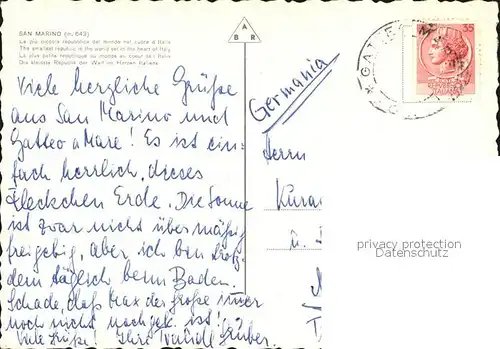 SAN MARINO (m. 643)
La più piccola repubblica del mondo nel cuore d'Italia
The smallest republic in the world set in the heart of Italy
La plus petite république du monde au coeur de l'Italie
Die kleinste Republik der Welt im Herzen Italiens
A
B R
35
Viele herzliche Grüße
aus San Marino und
Gatteo a Mare! Es ist ein-
fach herrlich, dieses
Fleckchen Erde. Die Sonne
ist zwar nicht übermäßig
freigebig, aber ich bin trotz-
dem täglich beim Baden.
Schade, daß Max der große immer
noch nicht nachgek. ist!
Viele Grüße! Ihre Gruber.
Germania
Herrn
Kura
u.
privacy protection
Datenschutz